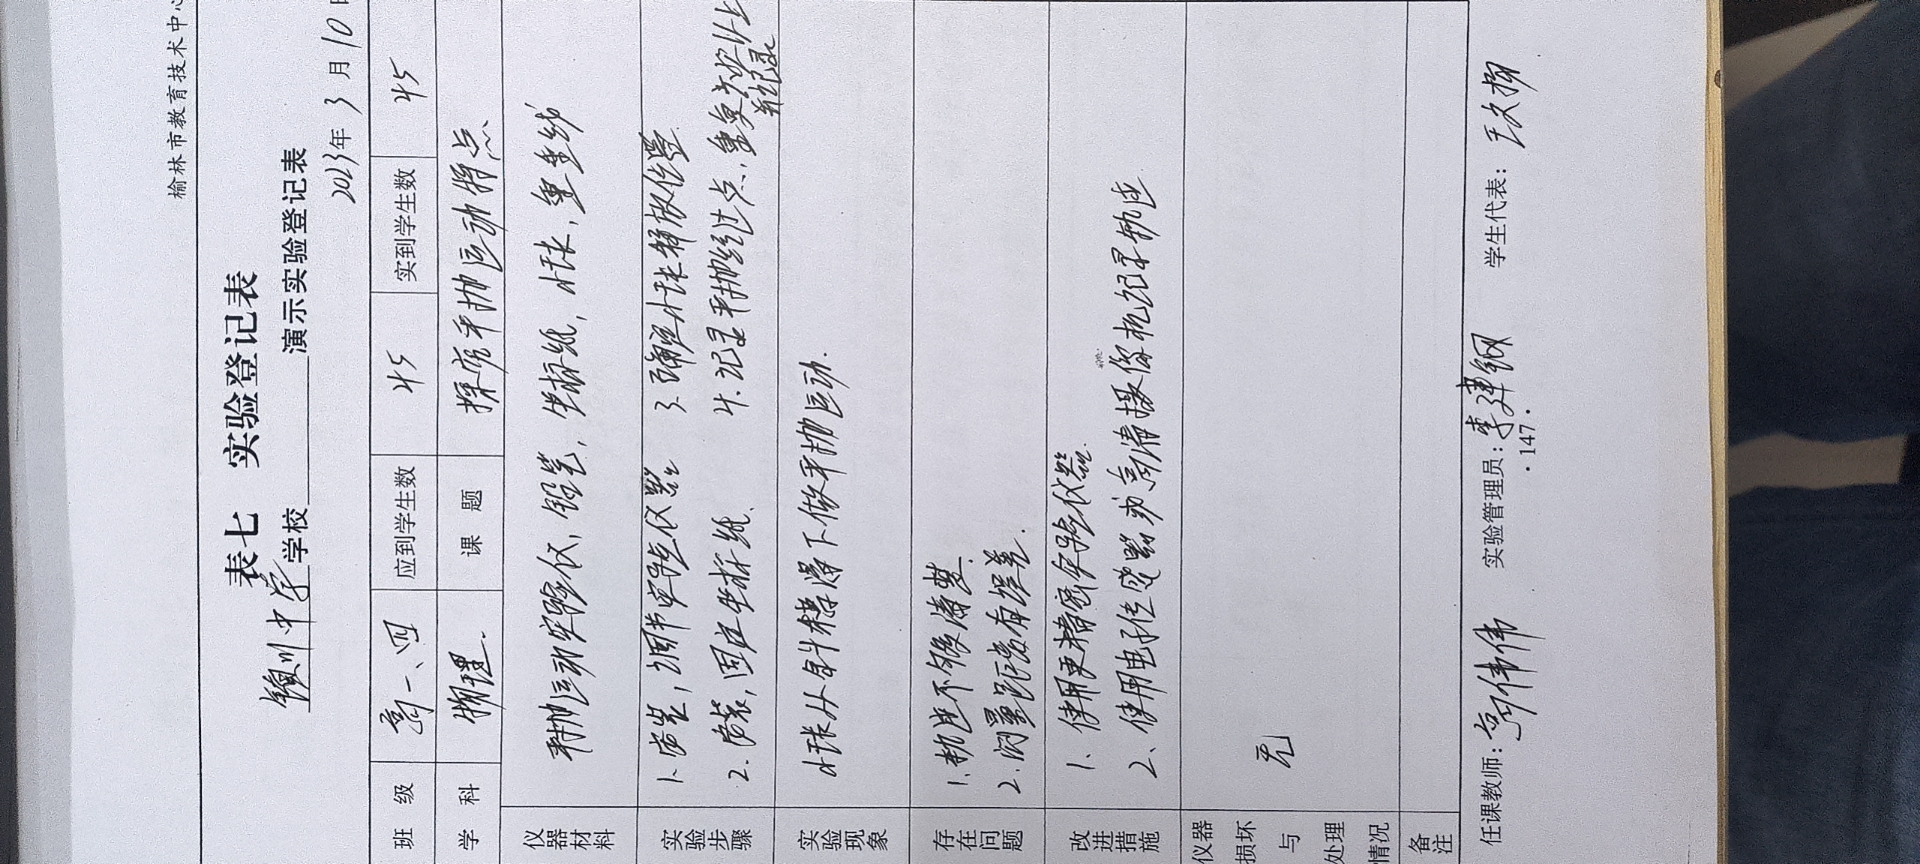 榆林市教育技术中心
表七 实验登记表
银川中学学校 演示实验登记表
2023年3月10日
班级 高一、四 应到学生数 45 实到学生数 45
学科 物理 课题 探究平抛运动特点
仪器材料 平抛运动实验仪，铅笔，坐标纸，小球，重垂线
实验步骤 1、安装，调节实验仪器 3、确定小球释放位置
2、安装，固定坐标纸、 4、记录平抛经过点、重复实验
并记录
实验现象 小球从自斜槽落下做平抛运动.
存在问题 1、轨迹不够清楚.
2、测量距离有误差.
改进措施 1、使用更精密实验仪器
2、使用电子传感器或高清摄像机记录轨迹
仪器损坏与处理情况 无
备注
任课教师： 实验管理员：李建钢 学生代表：
·147·